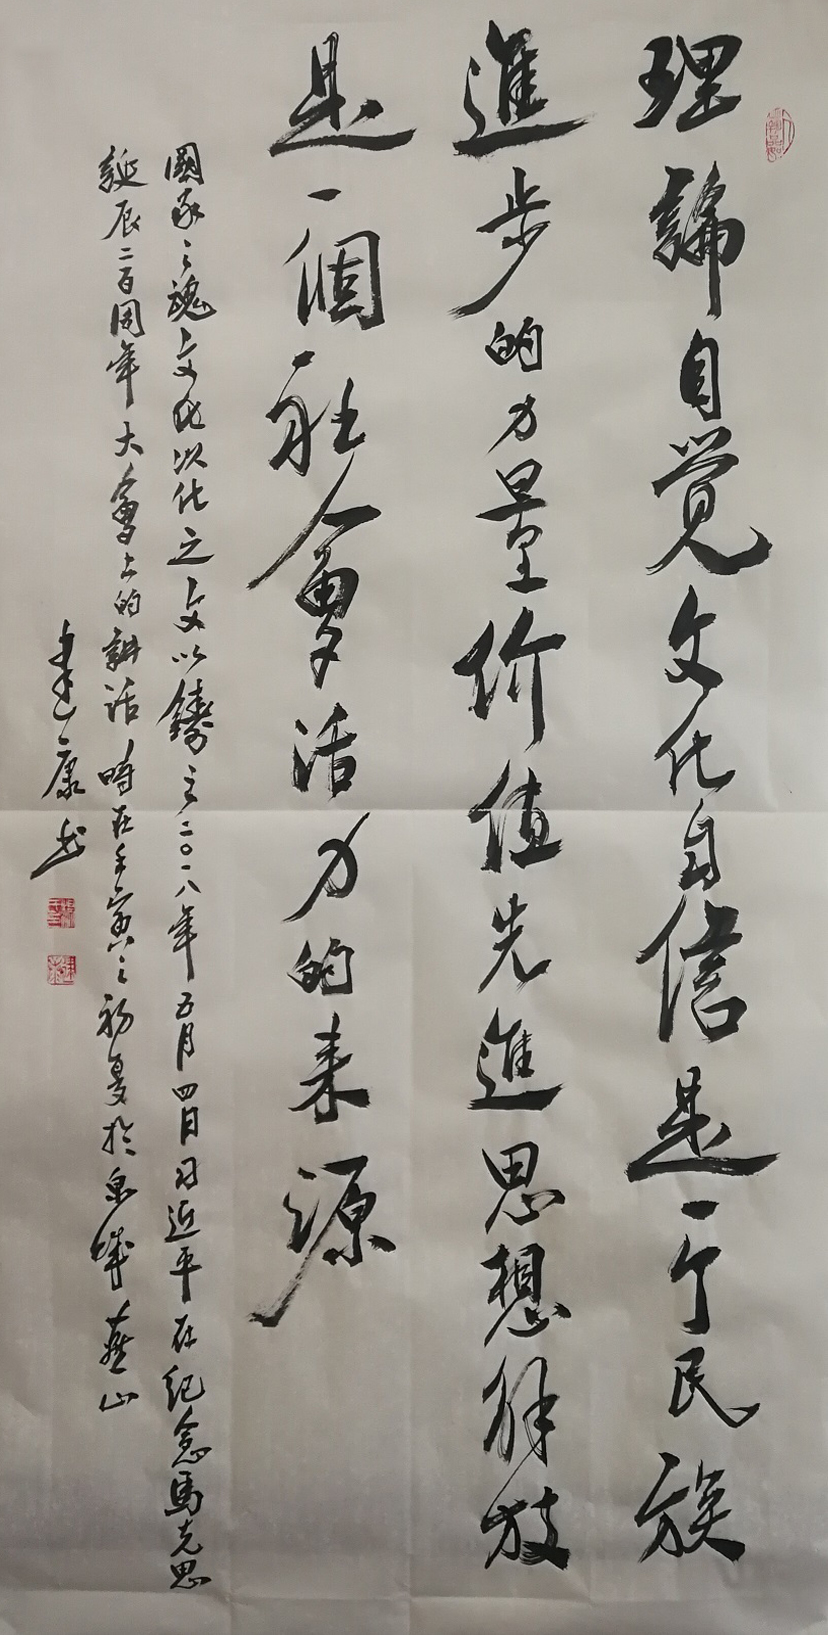 理論自觉文化自信是一个民族
進步的力量价值先進思想解放
是一個社會活力的来源
國家之魂文以化之文以鑄之二〇一八年五月四日习近平在纪念馬克思
誕辰二百周年大會上的講话 時在壬寅之初夏於泉城燕山
建康书